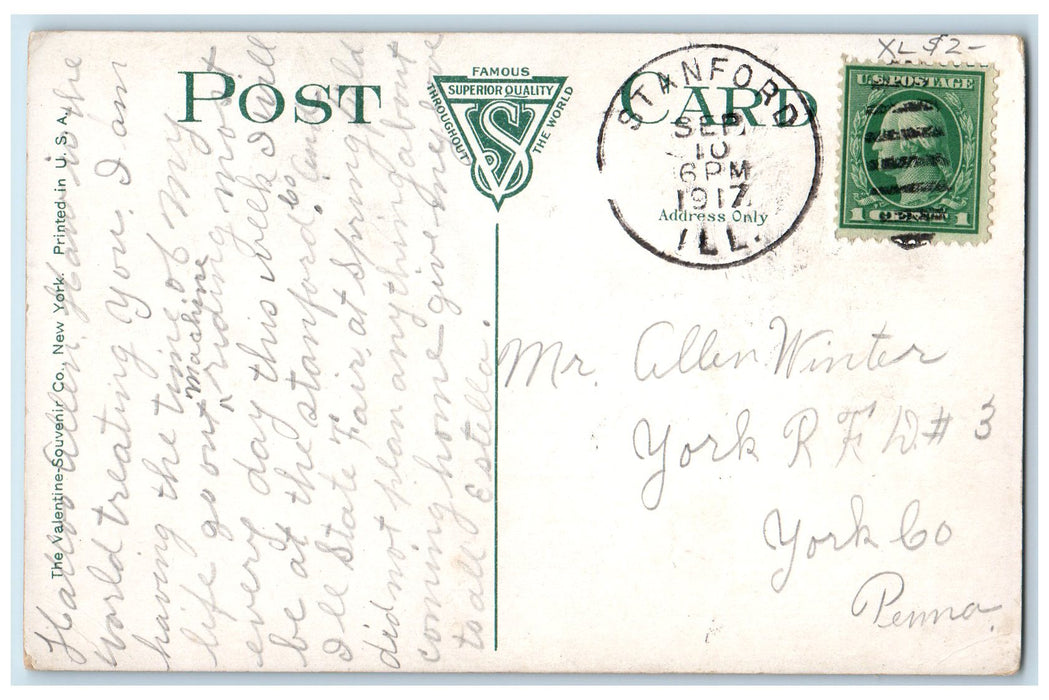 XL $2-
POST CARD
FAMOUS
SUPERIOR QUALITY
THROUGHOUT THE WORLD
VS
STANFORD
SEP.
10
6 PM
1917
ILL.
Address Only
U.S. POSTAGE
1 1
The Valentine-Souvenir Co., New York. Printed in U. S. A.
Hallo Allen. How is the
world treating you. I am
having the time of my
life go out machine riding most
every day this week I will
be at the stanford Co. and
Ill State Fair, at Springfield
did not plan anything about
coming home give my love
to all Estella.
Mr. Allen Winter
York R F D # 3
York Co
Penna.